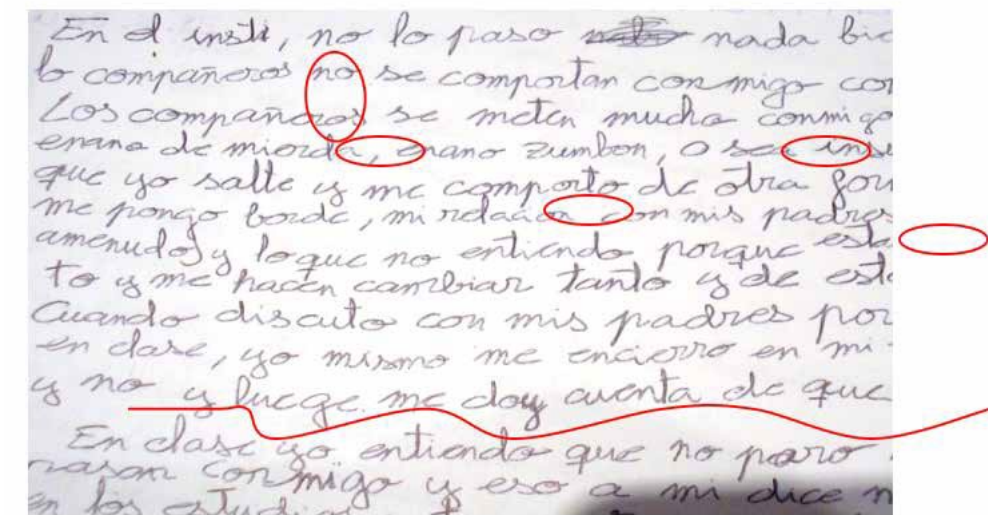 En el insti, no lo paso nada bie
lo compañeros no se comportan conmigo con
Los compañeros se meten mucho conmigo
enano de miorda, enano zumbon, o sea inse
que yo salte y me comporto de otra for
me pongo borde, mi relacion con mis padres
amenudo, y loque no entiendo porque esta
to y me hacen cambiar tanto y de est
Cuando discuto con mis padres por
en clase, yo mismo me encierro en mi
y no y luege me doy cuenta de que
En clase yo entiendo que no paro
conmigo y eso a mi dice
en los estudi